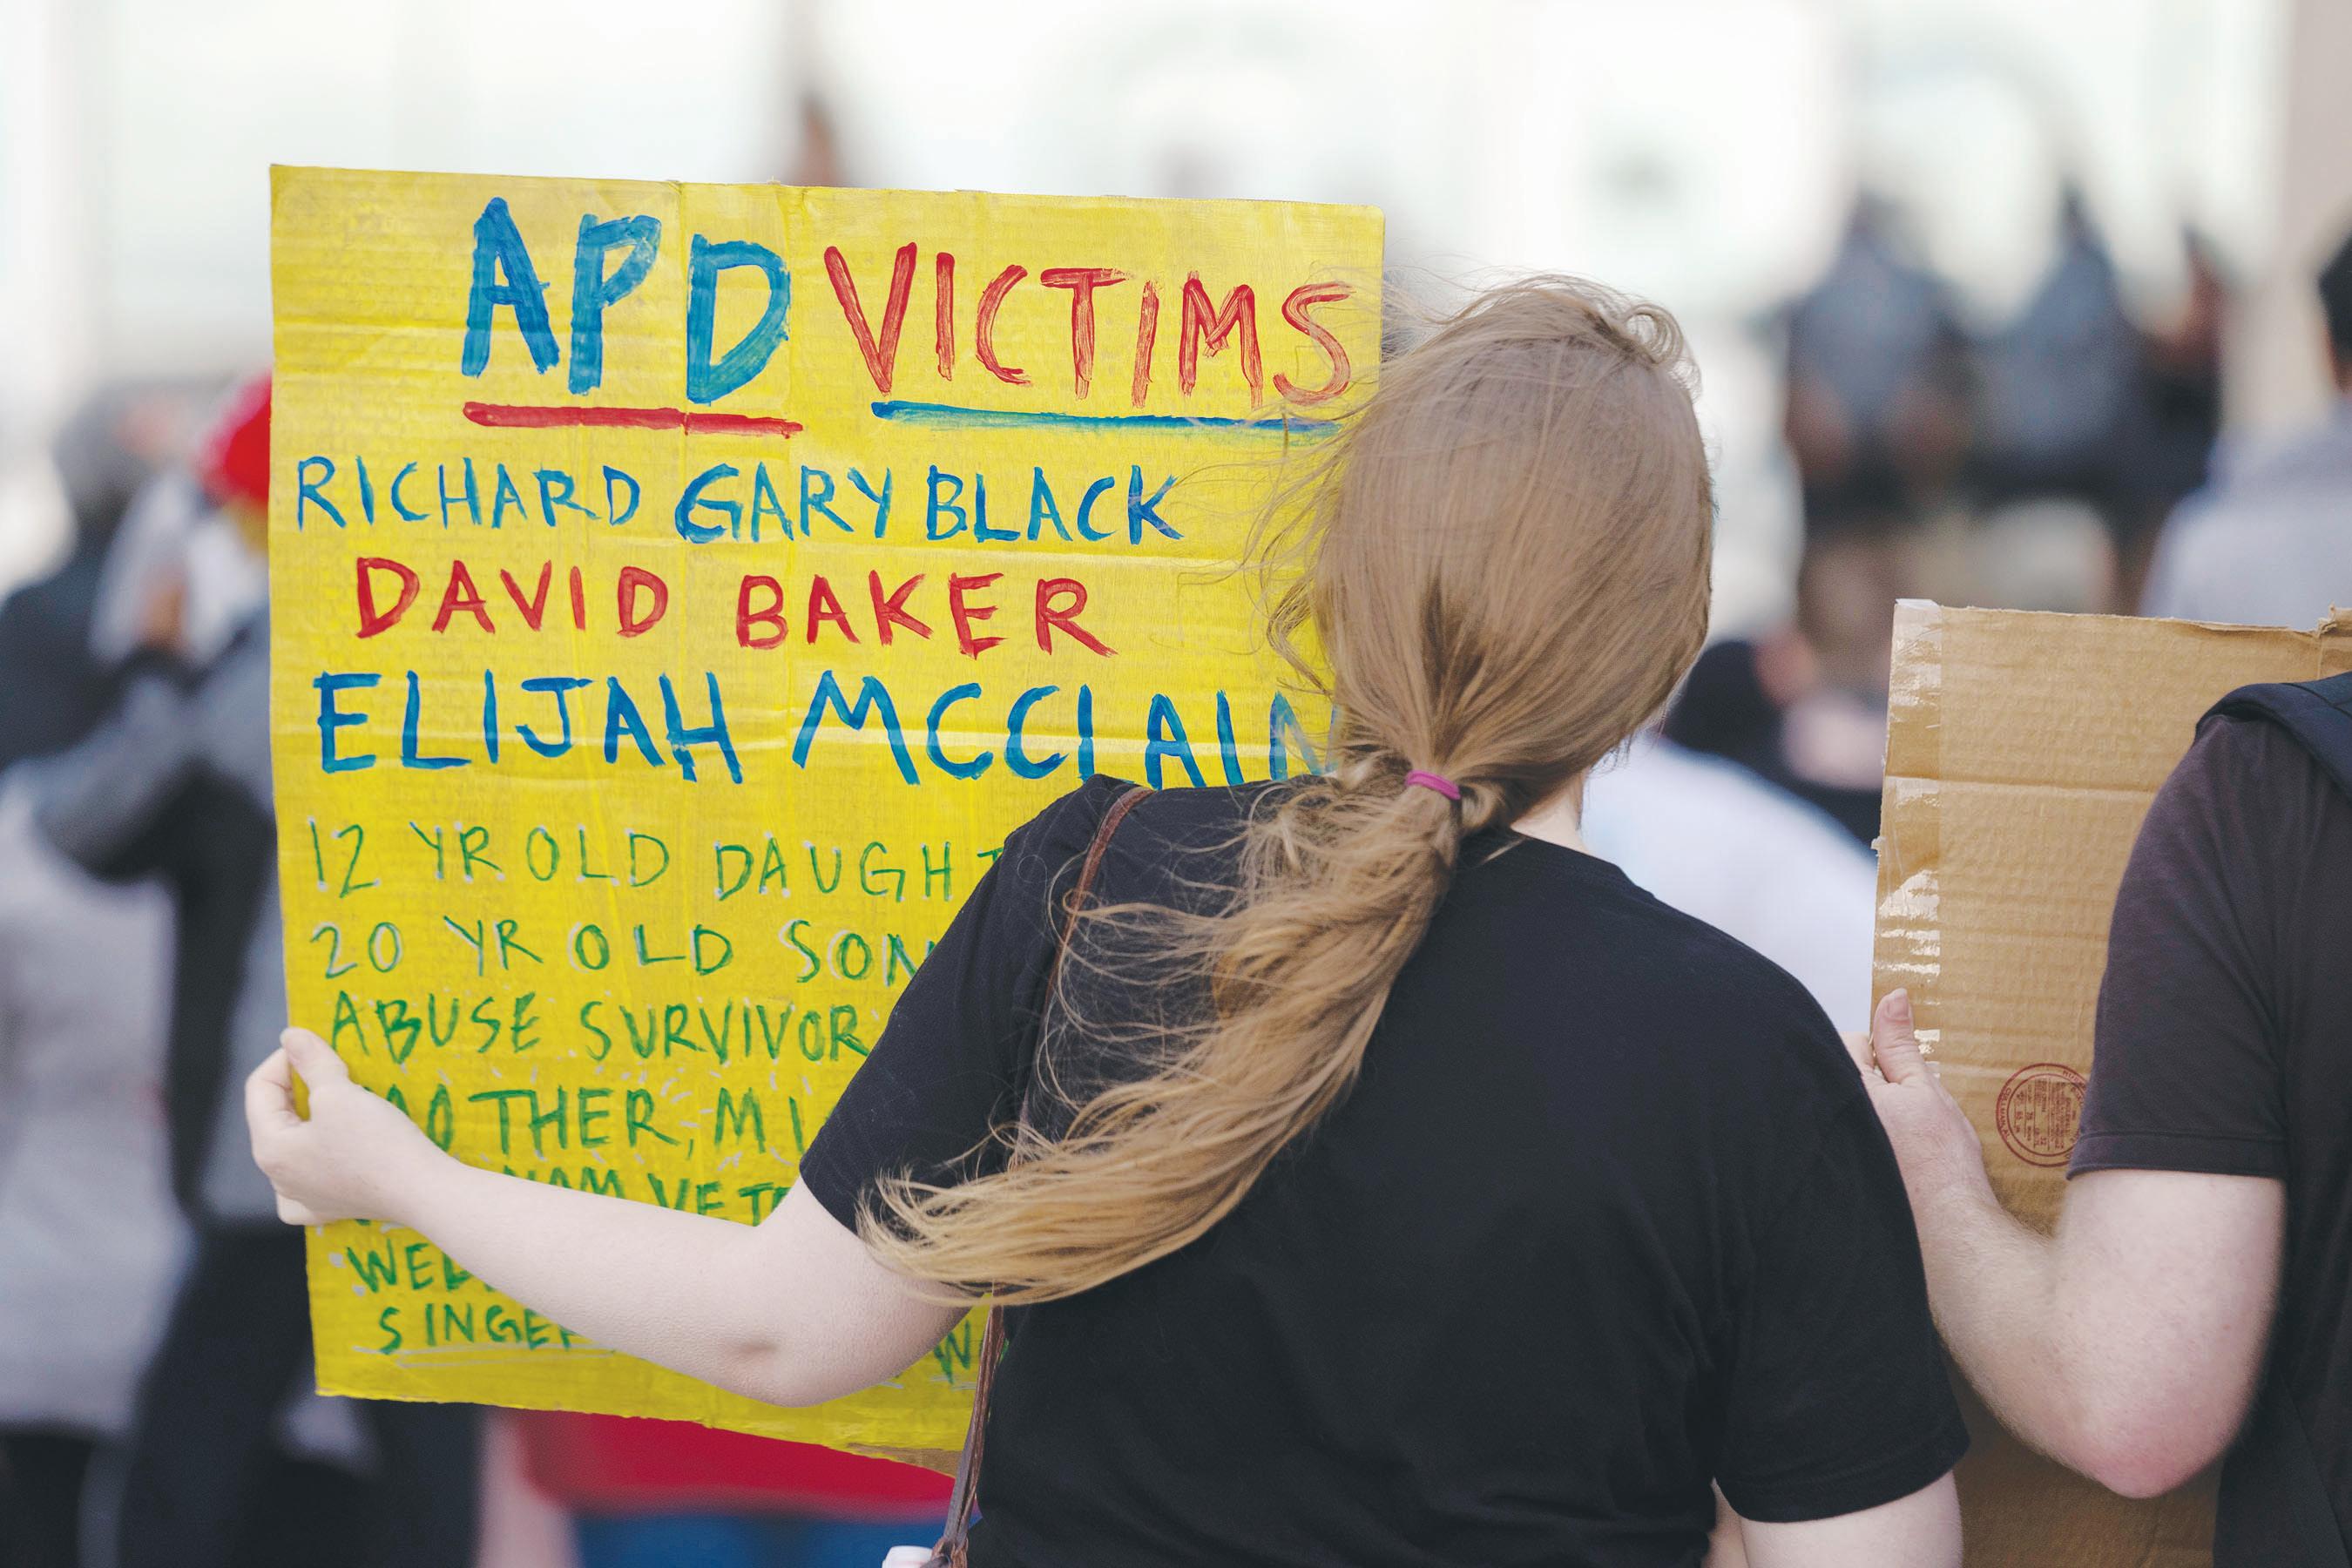 APD VICTIMS
RICHARD GARY BLACK
DAVID BAKER
ELIJAH MCCLAIN
12 YR OLD DAUGHT
20 YR OLD SON
ABUSE SURVIVOR
OTHER, MI
NAM VETE
WEL
SINGER